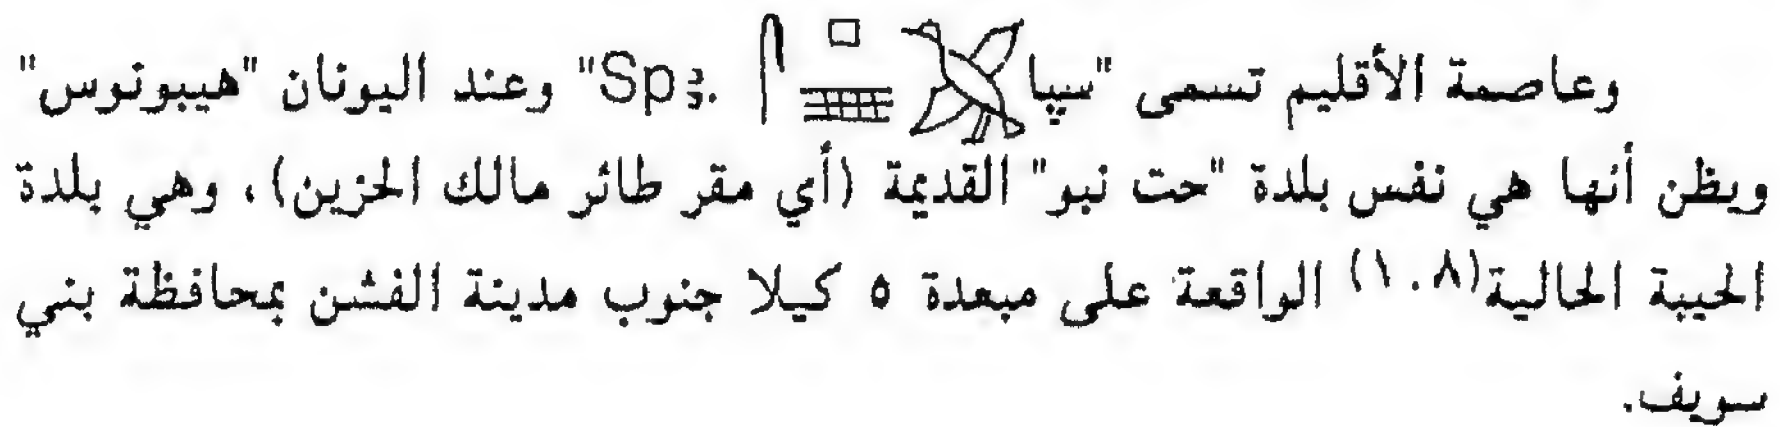 وعاصمة الأقليم تسمى "سپا 𓅯𓊪𓈈𓋴 Spꜣ." وعند اليونان "هيبونوس"
ويظن أنها هي نفس بلدة "حت نبو" القديمة (أي مقر طائر مالك الحزين)، وهي بلدة
الحيبة الحالية(١٠٨) الواقعة على مبعدة ٥ كيلا جنوب مدينة الفشن بمحافظة بني
سويف.